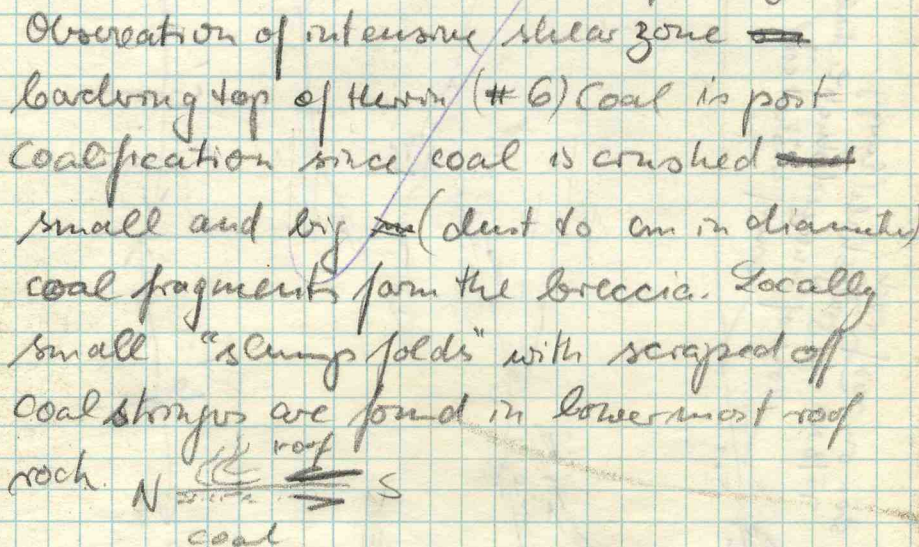 Obsreation of intensive shear zone
bordering top of Herrin (#6) Coal is post
Coalification since coal is crushed
small and big (dust to cm in diameter)
coal fragments form the breccia. Locally
small "slump folds" with scraped off
Coal stringers are found in lowermost roof
rock. N roof S
coal